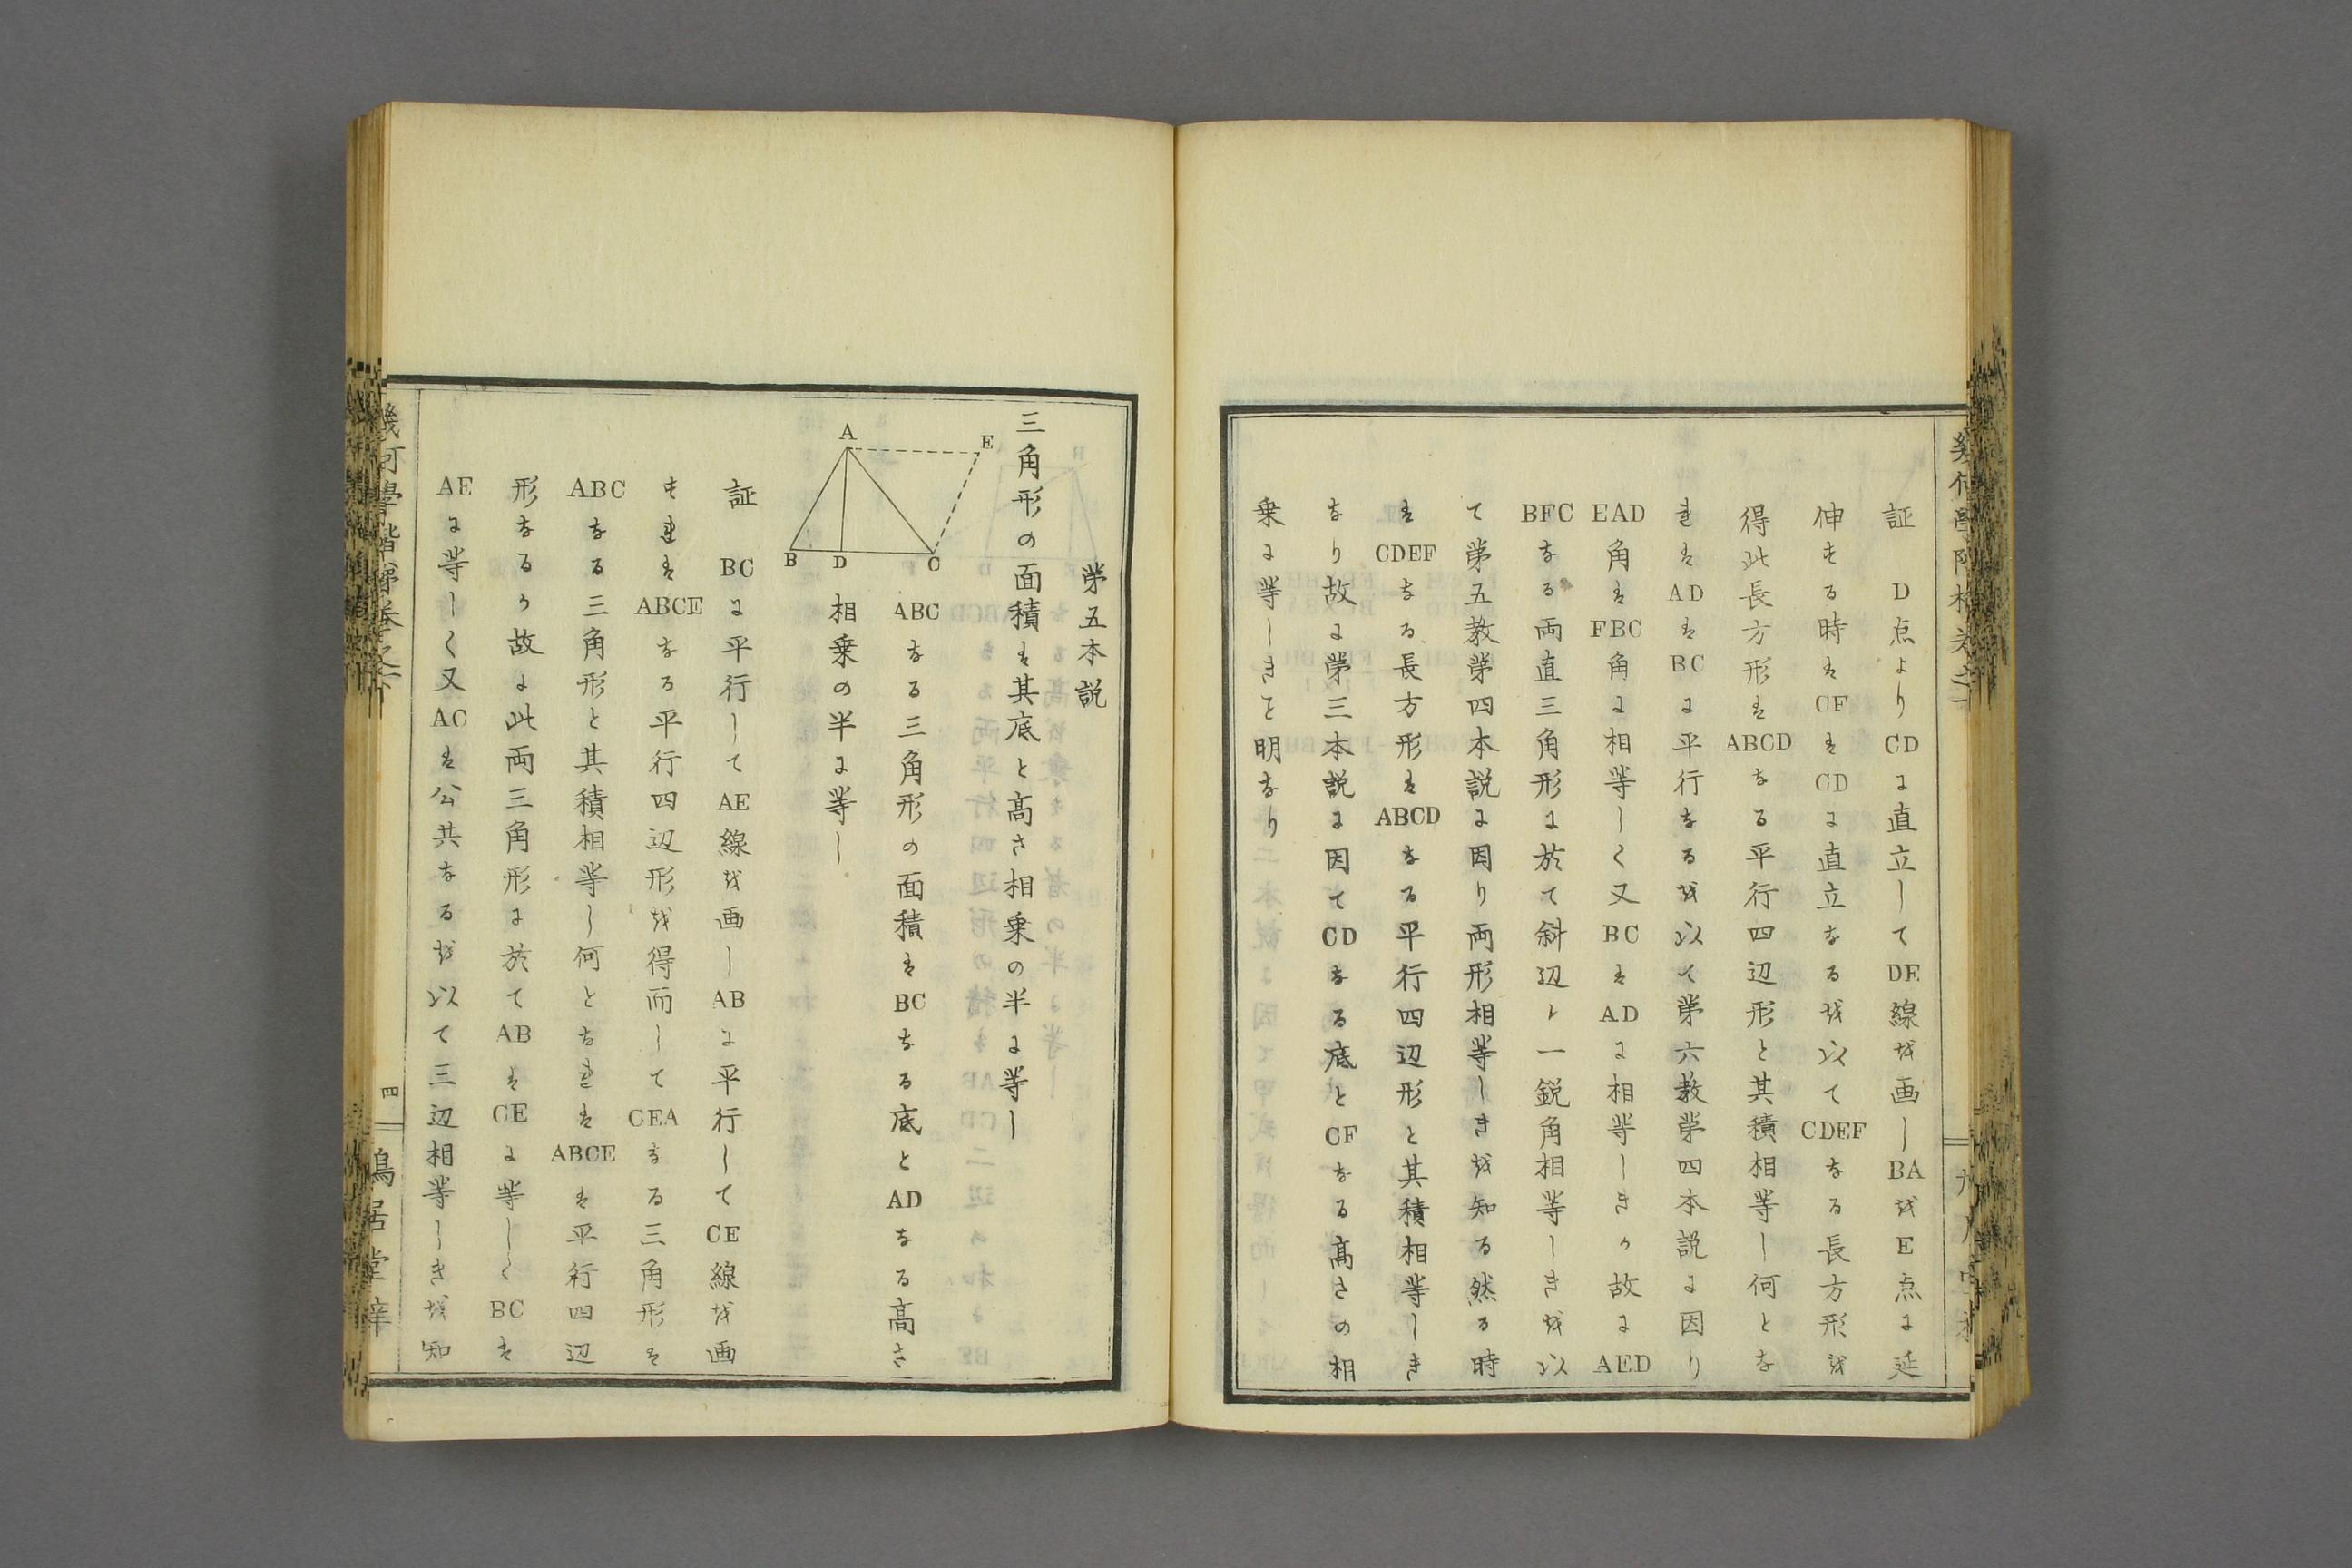 証　D点よりCDに直立してDE線を画しBAをE点に延
伸する時はCFはCDに直立なるを以てCDEFなる長方形を
得此長方形はABCDなる平行四辺形と其積相等し何とな
ればADはBCに平行なるを以て第六教第四本説に因り
EAD角はFBC角に相等しく又BCはADに相等しきか故にAED
BFC なる両直三角形に於て斜辺ト一鋭角相等しきを以
て第五教第四本説に因り両形相等しきを知る然る時
はCDEFなる長方形はABCDなる平行四辺形と其積相等しき
なり故に第三本説に因てCDなる底とCFなる高さの相
乗に等しきこと明なり
第五本説
三角形の面積は其底と高さ相乗の半に等し
ABCなる三角形の面積はBCなる底とADなる高さ
相乗の半に等し
A
E
B
D
C
証　BCに平行してAE線を画しABに平行してCE線を画
すればABCEなる平行四辺形を得而してCEAなる三角形は
ABCなる三角形と其積相等し何となればABCEは平行四辺
形なるか故に此両三角形に於てABはCEに等しくBCは
AEに等しく又ACは公共なるを以て三辺相等しきを知
幾何學階梯巻之二
四
鳴居堂梓